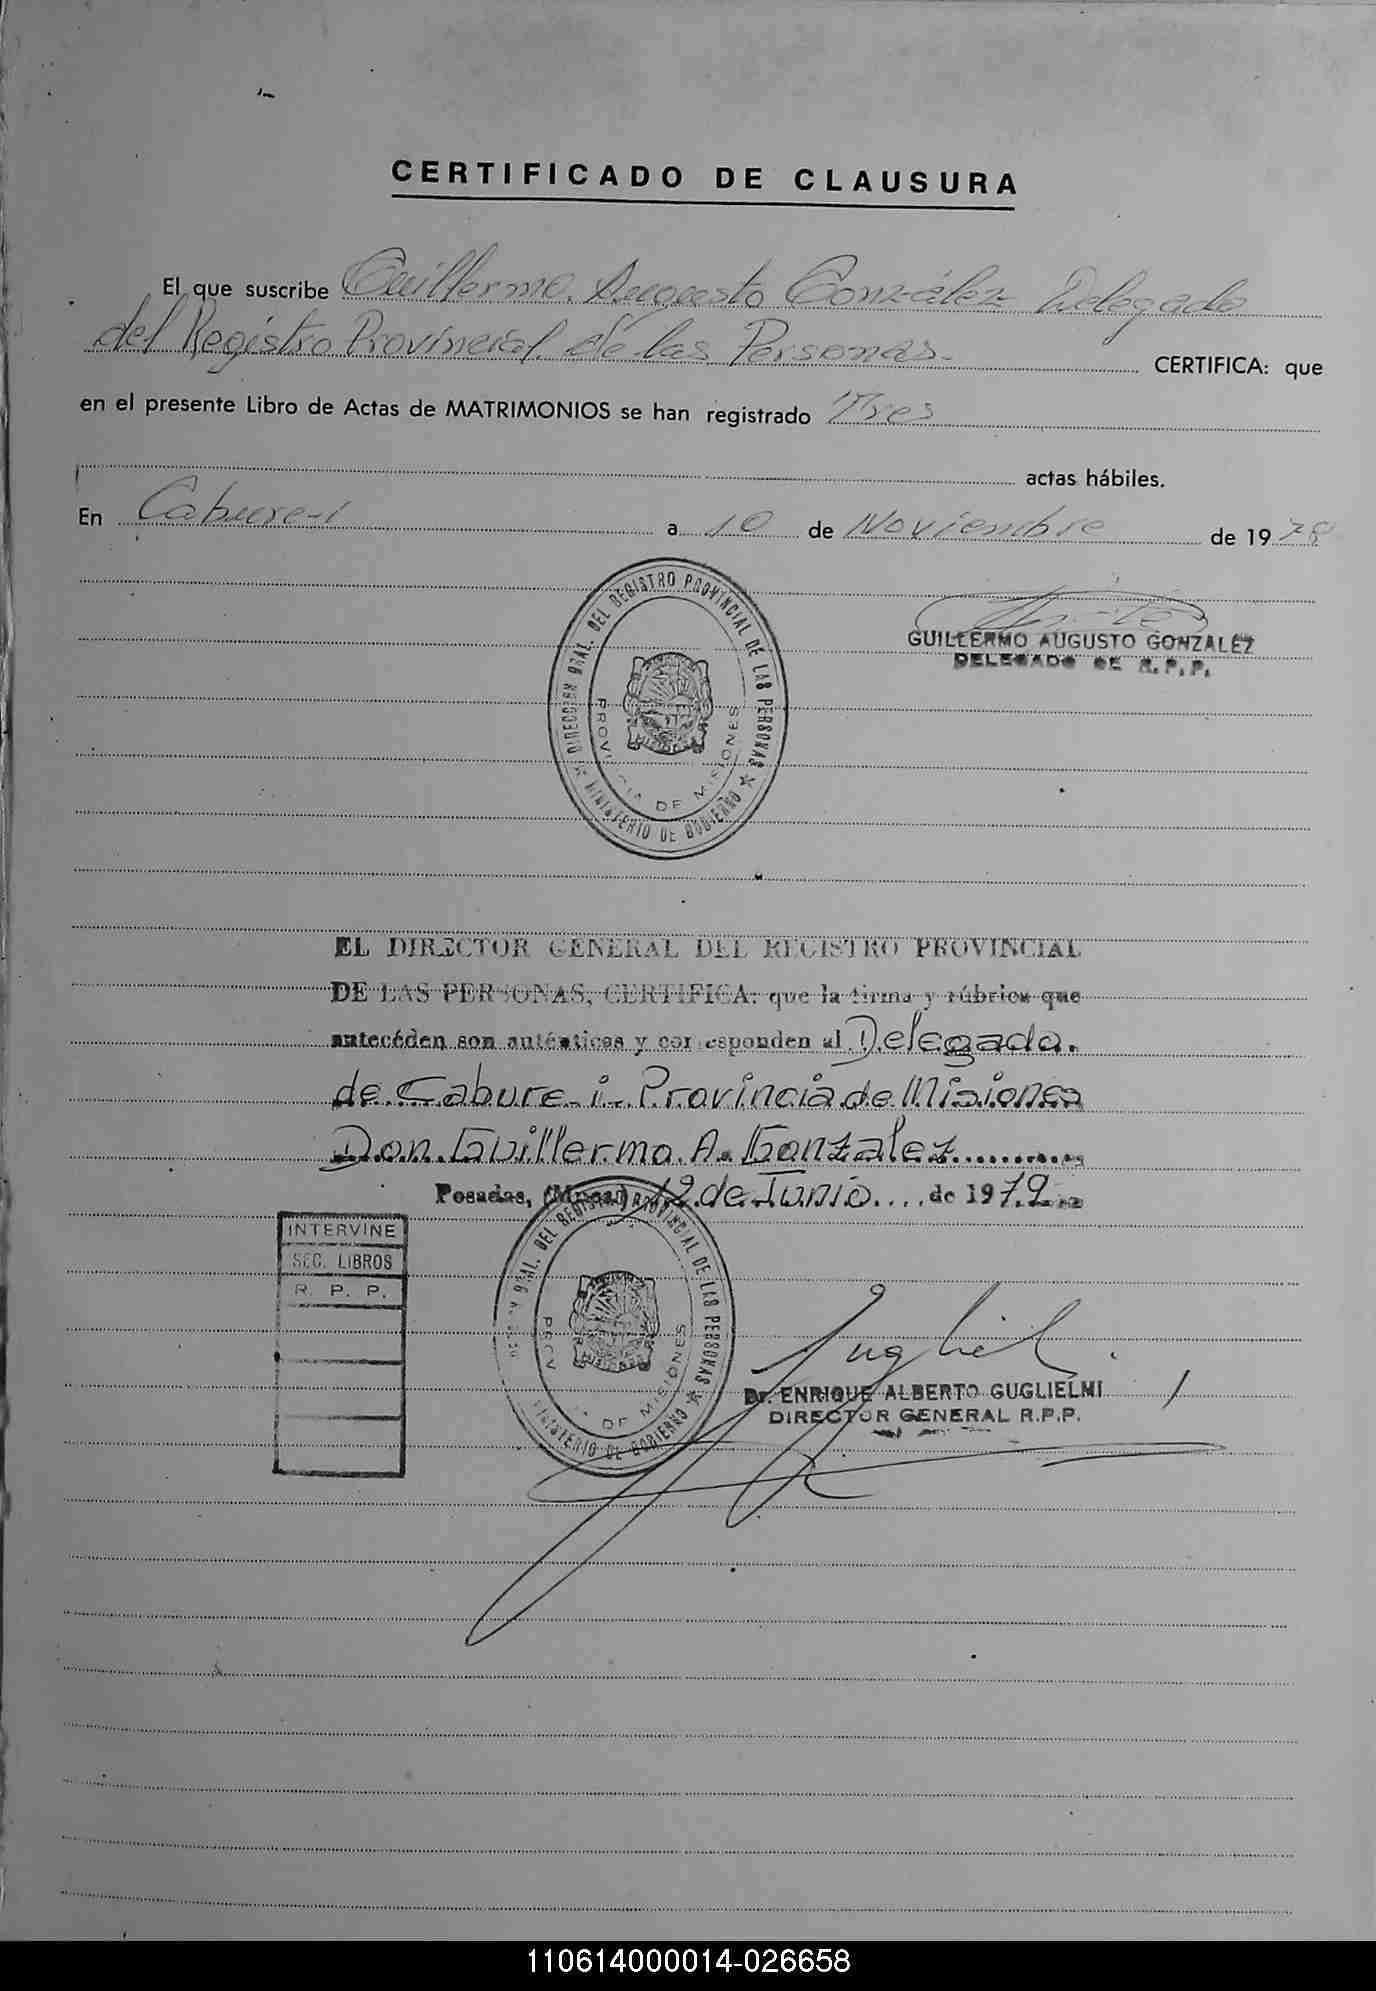 CERTIFICADO DE CLAUSURA
El que suscribe Guillermo Augusto González Delegado
del Registro Provincial de las Personas.- CERTIFICA: que
en el presente Libro de Actas de MATRIMONIOS se han registrado Tres
actas hábiles.
En Cabure-i a 10 de Noviembre de 1978
DIRECCION GRAL. DEL REGISTRO PROVINCIAL DE LAS PERSONAS
PROVINCIA DE MISIONES
MINISTERIO DE GOBIERNO
GUILLERMO AUGUSTO GONZALEZ
DELEGADO DE R.P.P.
EL DIRECTOR GENERAL DEL REGISTRO PROVINCIAL
DE LAS PERSONAS, CERTIFICA: que la firma y rúbrica que
antecéden son auténticas y corresponden al Delegado.
de Cabure-i- Provincia de Misiones
Don Guillermo A. Gonzalez
Posadas, (Mnes.) 12 de Junio de 1979
INTERVINE
SEC. LIBROS
R. P. P.
GRAL. DEL REGISTRO PROVINCIAL DE LAS PERSONAS
DE MISIONES
MINISTERIO DE GOBIERNO
Dr. ENRIQUE ALBERTO GUGLIELMI
DIRECTOR GENERAL R.P.P.
110614000014-026658